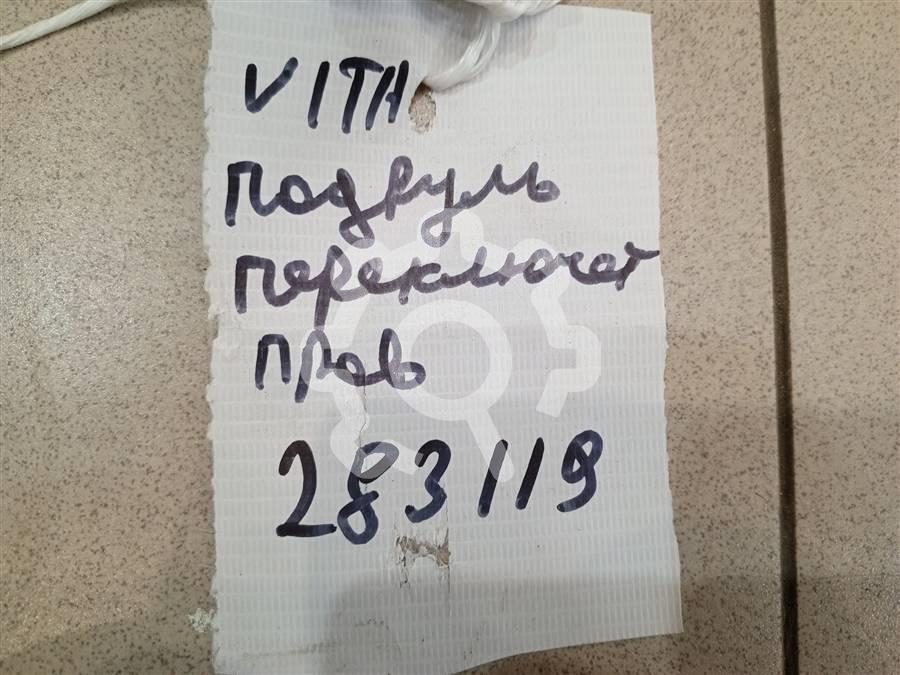 VITA
подруль
переключат
прав
283119